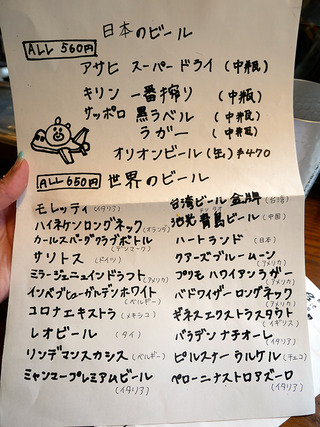 日本のビール
ALL 560円
アサヒ スーパードライ (中瓶)
キリン 一番搾り (中瓶)
サッポロ 黒ラベル (中瓶)
ラガー (中瓶)
オリオンビール (缶) ¥470
ALL 650円 世界のビール
モレッティ (イタリア)
ハイネケンロングネック (オランダ)
カールスバーグクラブボトル (デンマーク)
サソトス (ドイツ)
ミラージェニュインドラフト (アメリカ)
インベブヒューガルデンホワイト (ベルギー)
コロナエキストラ (メキシコ)
レオビール (タイ)
リンデマンスカシス (ベルギー)
ミャンマープレミアムビール (イタリア)
台湾ビール 金牌 (台湾)
青島ビール (中国)
ハートランド (日本)
クアーズブルームーン (アメリカ)
プリモ ハワイアンラガー (アメリカ)
バドワイザーロングネック (アメリカ)
ギネスエクストラスタウト (イギリス)
バラデン ナチオーレ (イタリア)
ピルスナー ウルケル (チェコ)
ペローニナストロアズーロ (イタリア)